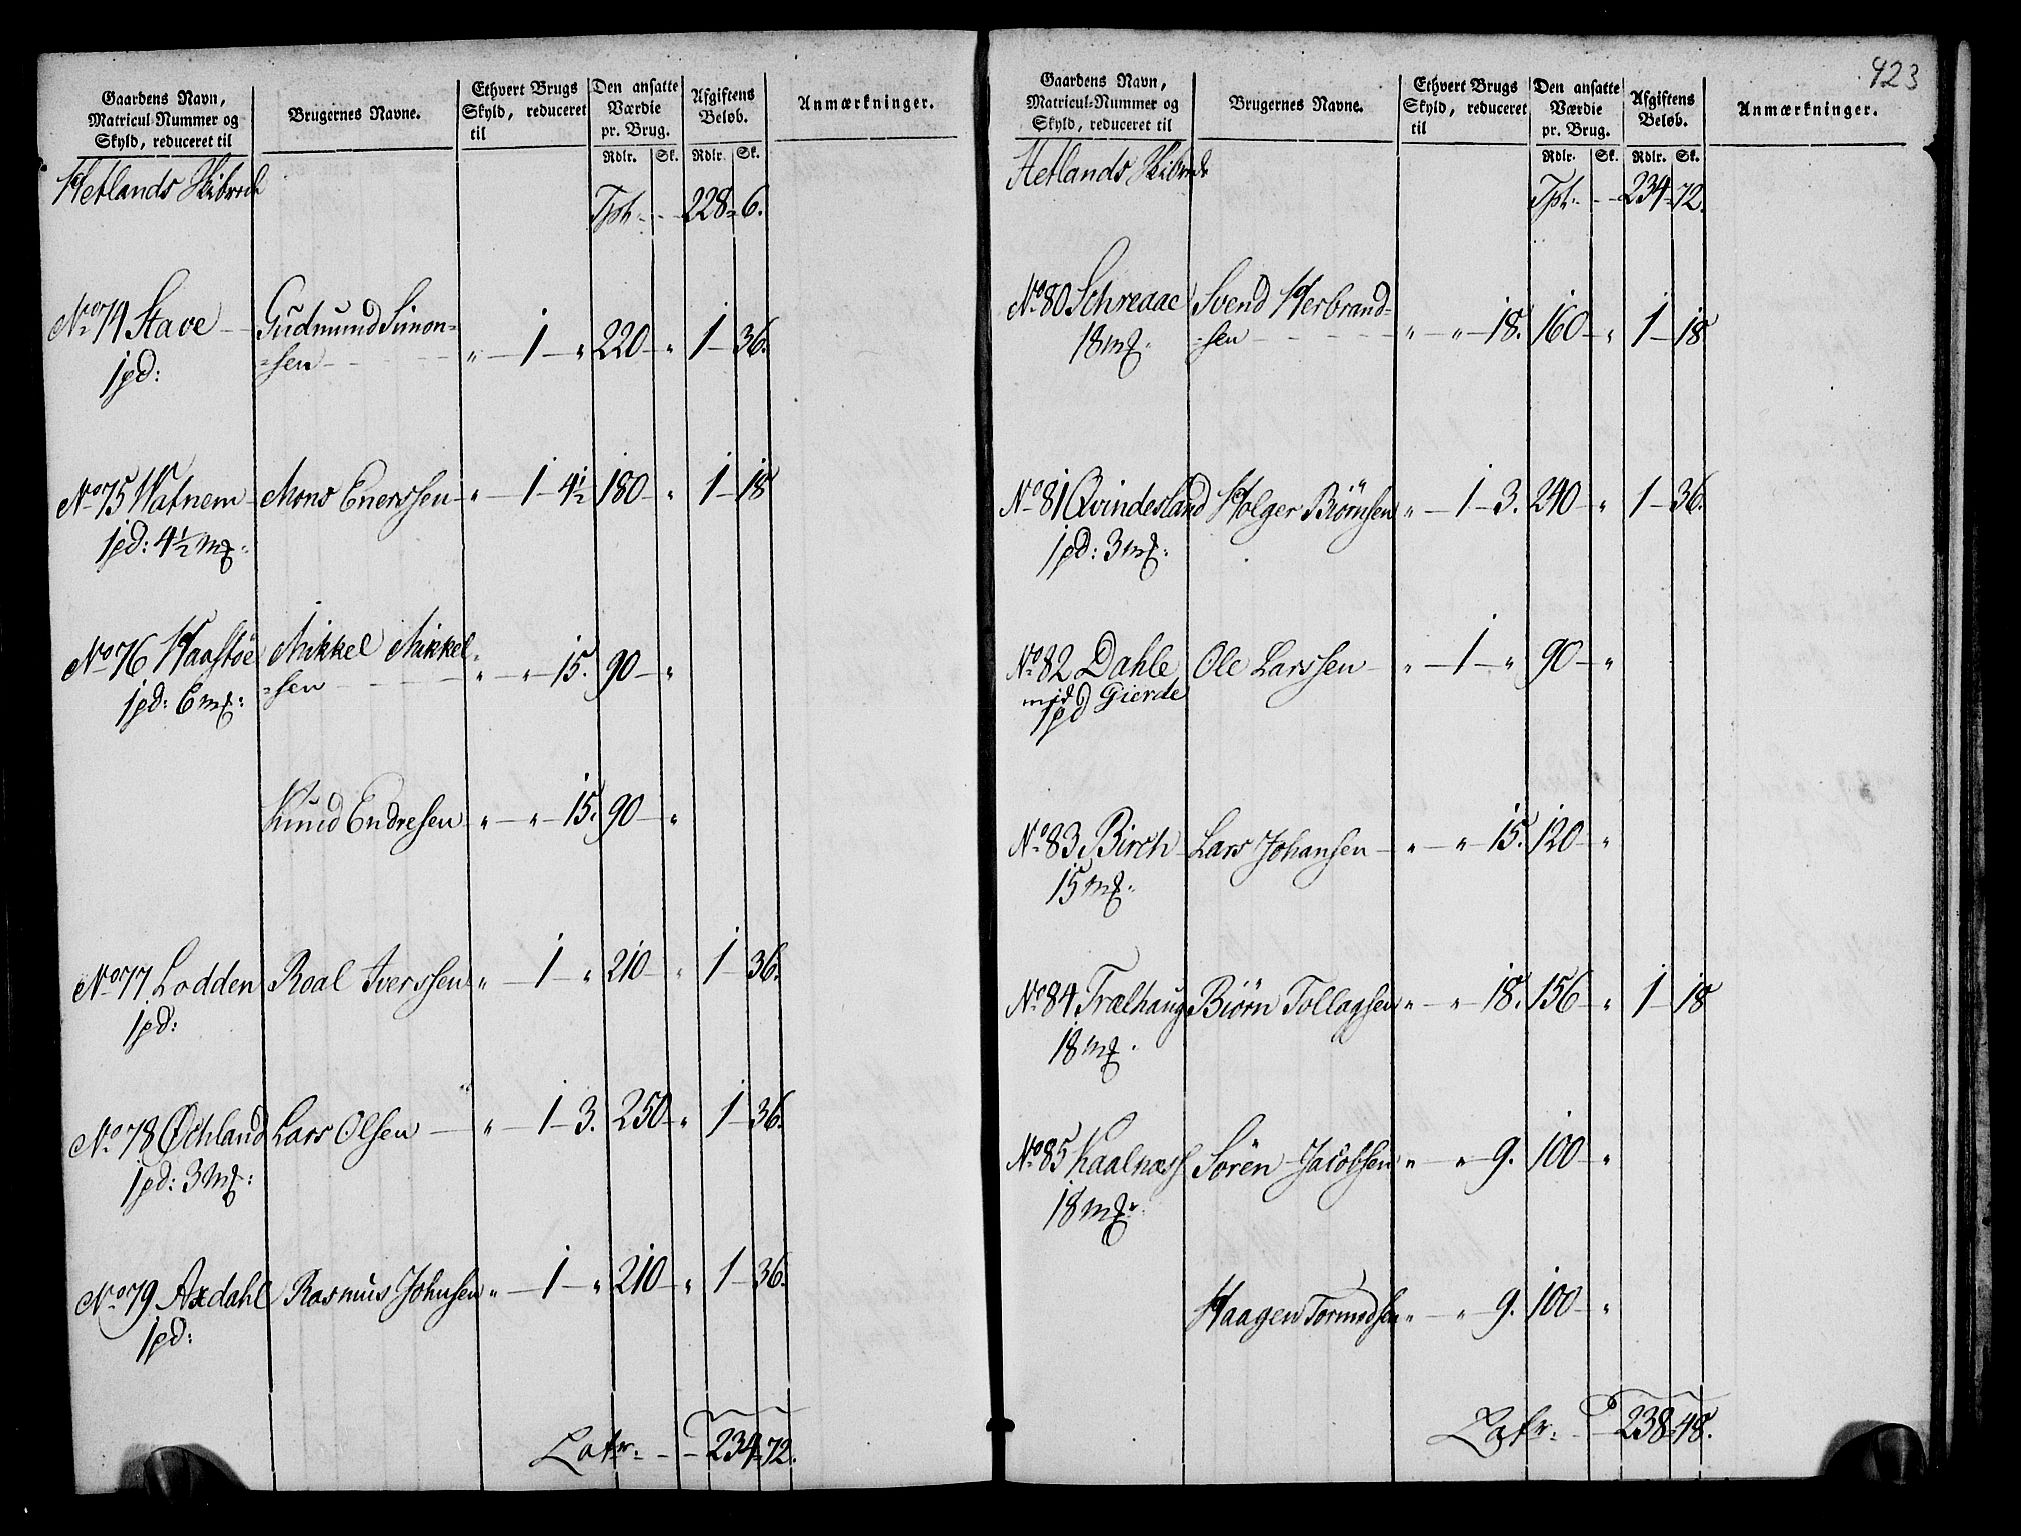 Gaardens Navn, Matricul-Nummer og Skyld, reduceret til | Brugernes Navne. | Ethvert Brugs Skyld, reduceret til | Den ansatte Værdie pr. Brug. | Afgiftens Beløb. | Anmærkninger.
Rdlr. | Sk. | Rdlr. | Sk.
Hetlands Skibrede
Tpt. - - 228 " 6.
No 74 Stave - Gudmund Simon=
=sen - - " - 1 - " 220 - " 1 - 36.
1 pd:
No 75 Watnem - Mons Enerssen - " - 1 - 4½ 180 - " 1 - 18
1 pd: 4½ mȝ:
No 76 Haastöe Mikkel Mikkel
=sen - - - " - " - 15. 90 - "
1 pd: 6 mȝ:
Knud Endresen " - " - 15. 90 - "
No 77 Lodden Roal Iverssen " - 1 - " 210 - " 1 - 36.
1 pd:
No 78 Øchland Lars Olsen - " - 1 - 3. 250 - " 1 - 36.
1 pd: 3 mȝ:
No 79 Axdahl Rasmus Johnsen " - 1 - " 210 - " 1 - 36.
1 pd:
Latr: - - 234 " 72.
423
Gaardens Navn, Matricul-Nummer og Skyld, reduceret til | Brugernes Navne. | Ethvert Brugs Skyld, reduceret til | Den ansatte Værdie pr. Brug. | Afgiftens Beløb. | Anmærkninger.
Rdlr. | Sk. | Rdlr. | Sk.
Hetlands Skibrede
Tpt. - - 234 " 72.
No 80 Schreaae Svend Herbrand=
=sen - - - " - " - 18. 160 - " 1 - 18
18 mȝ.
No 81 Qvindesland Holger Biörnsen " - 1 - 3. 240 - " 1 - 36.
1 pd: 3 mȝ:
No 82 Dahle Ole Larssen - " - 1 - " 90 - "
med Gierde
1 pd
No 83 Birch Lars Johansen - " - " 15. 120 - "
15 mȝ.
No 84 Trælhaug Biörn Tollagsen " - " - 18. 156 - " 1 - 18
18 mȝ.
No 85 Kaalnæss Sören Jacobsen " - " 9. 100 - "
18 mȝ.
Haagen Tormodsen " - " 9. 100 - "
Latr: - - 238 " 48.